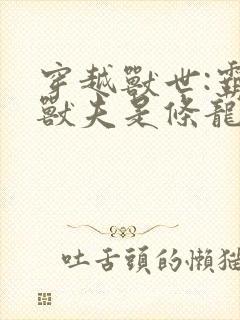 穿越獸世:霸
獸夫是條龍
吐舌頭的懶猫